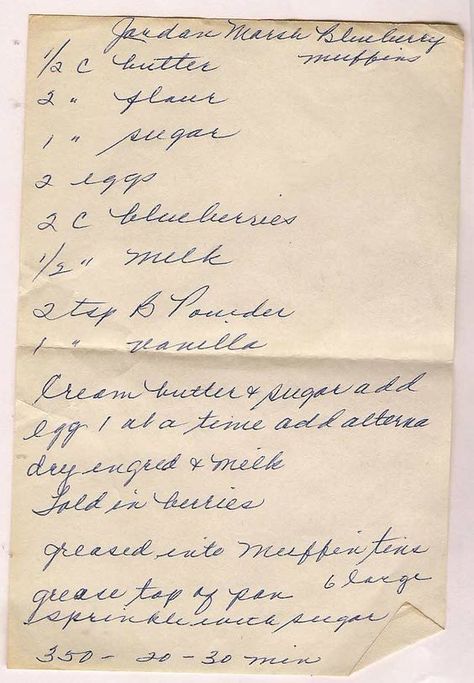 Jordan Marsh Blueberry
muffins
1/2 C butter
2 " flour
1 " sugar
2 eggs
2 C blueberries
1/2 " milk
2 tsp B Powder
1 " vanilla
Cream butter & sugar add
egg 1 at a time add alterna
dry ingred & milk
Fold in berries
greased into muffin tins
6 large
grease top of pan
sprinkle with sugar
350 - 20 - 30 min